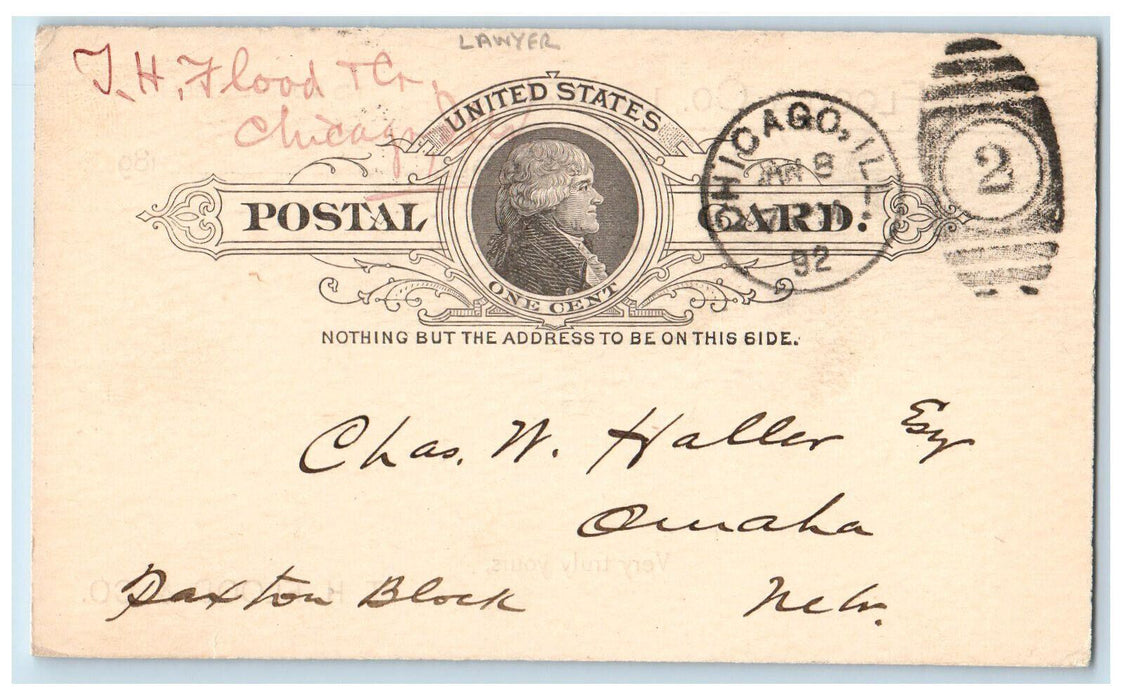 LAWYER
T. H. Flood & Co.
Chicago
UNITED STATES
POSTAL CARD.
ONE CENT
NOTHING BUT THE ADDRESS TO BE ON THIS SIDE.
CHICAGO, ILL.
8
92
2
Chas. W. Haller Esq
Omaha
Paxton Block Nebr.
Very truly yours,